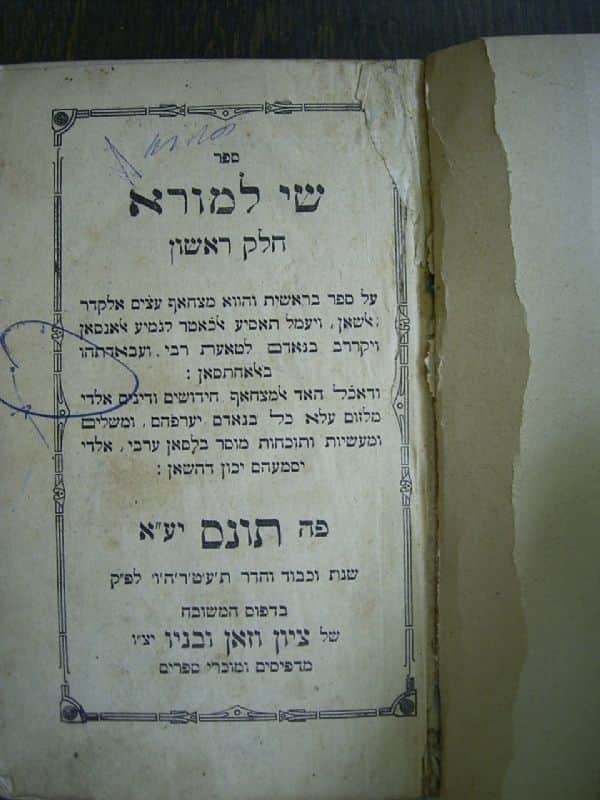 ספר
שי למורא
חלק ראשון
על ספר בראשית והווא מצחאף עצׄים אלקדר
ושאן, ויעמל תאסיע אכׄאטר לגמיע אנסאן
ויקררב בנאדם לטאערת רבי, ועבאדתהו
באׄאחתסאן :
ודאכׄל האד אמצחאף חידושים ודינים אלדי
מלזום עלא כל בנאדם יערפהם, ומשלים
ומעשיות ותוכחות מוסר בלסאן ערבי, אלדי
יסמעהם יכון דהשאן :
פה תונס יע״א
שנת וכבוד והדר ת׳ע׳ט׳ר׳ה׳ו׳ לפ״ק
בדפוס המשובח
של ציון וזאן ובניו יצ״ו
מדפיסים ומוכרי ספרים